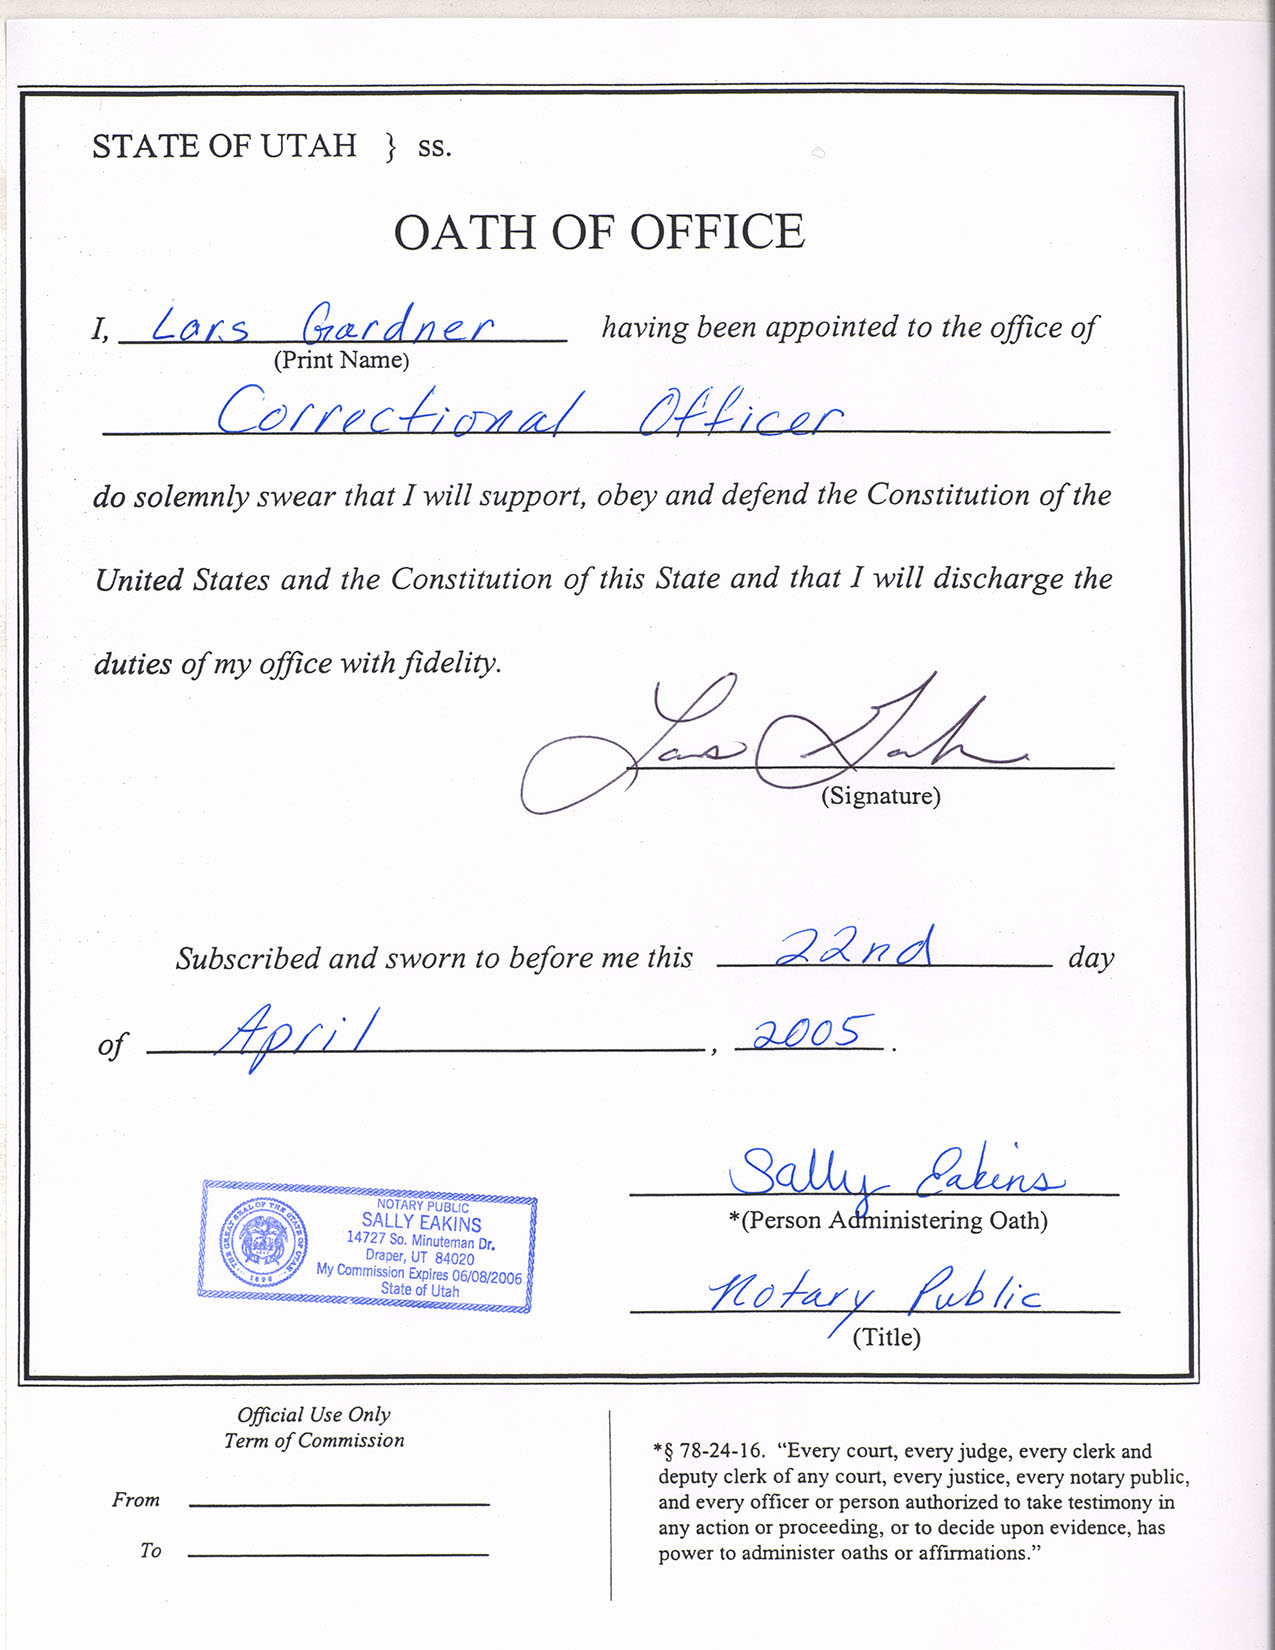 STATE OF UTAH } ss.
OATH OF OFFICE
I, Lars Gardner having been appointed to the office of
(Print Name)
Correctional Officer
do solemnly swear that I will support, obey and defend the Constitution of the
United States and the Constitution of this State and that I will discharge the
duties of my office with fidelity.
Lars Gardner
(Signature)
Subscribed and sworn to before me this 22nd day
of April, 2005.
Sally Eakins
*(Person Administering Oath)
NOTARY PUBLIC
SALLY EAKINS
14727 So. Minuteman Dr.
Draper, UT 84020
My Commission Expires 06/08/2006
State of Utah
THE GREAT SEAL OF THE STATE OF UTAH
1896
Notary Public
(Title)
Official Use Only
Term of Commission
From
To
*§ 78-24-16. “Every court, every judge, every clerk and
deputy clerk of any court, every justice, every notary public,
and every officer or person authorized to take testimony in
any action or proceeding, or to decide upon evidence, has
power to administer oaths or affirmations.”